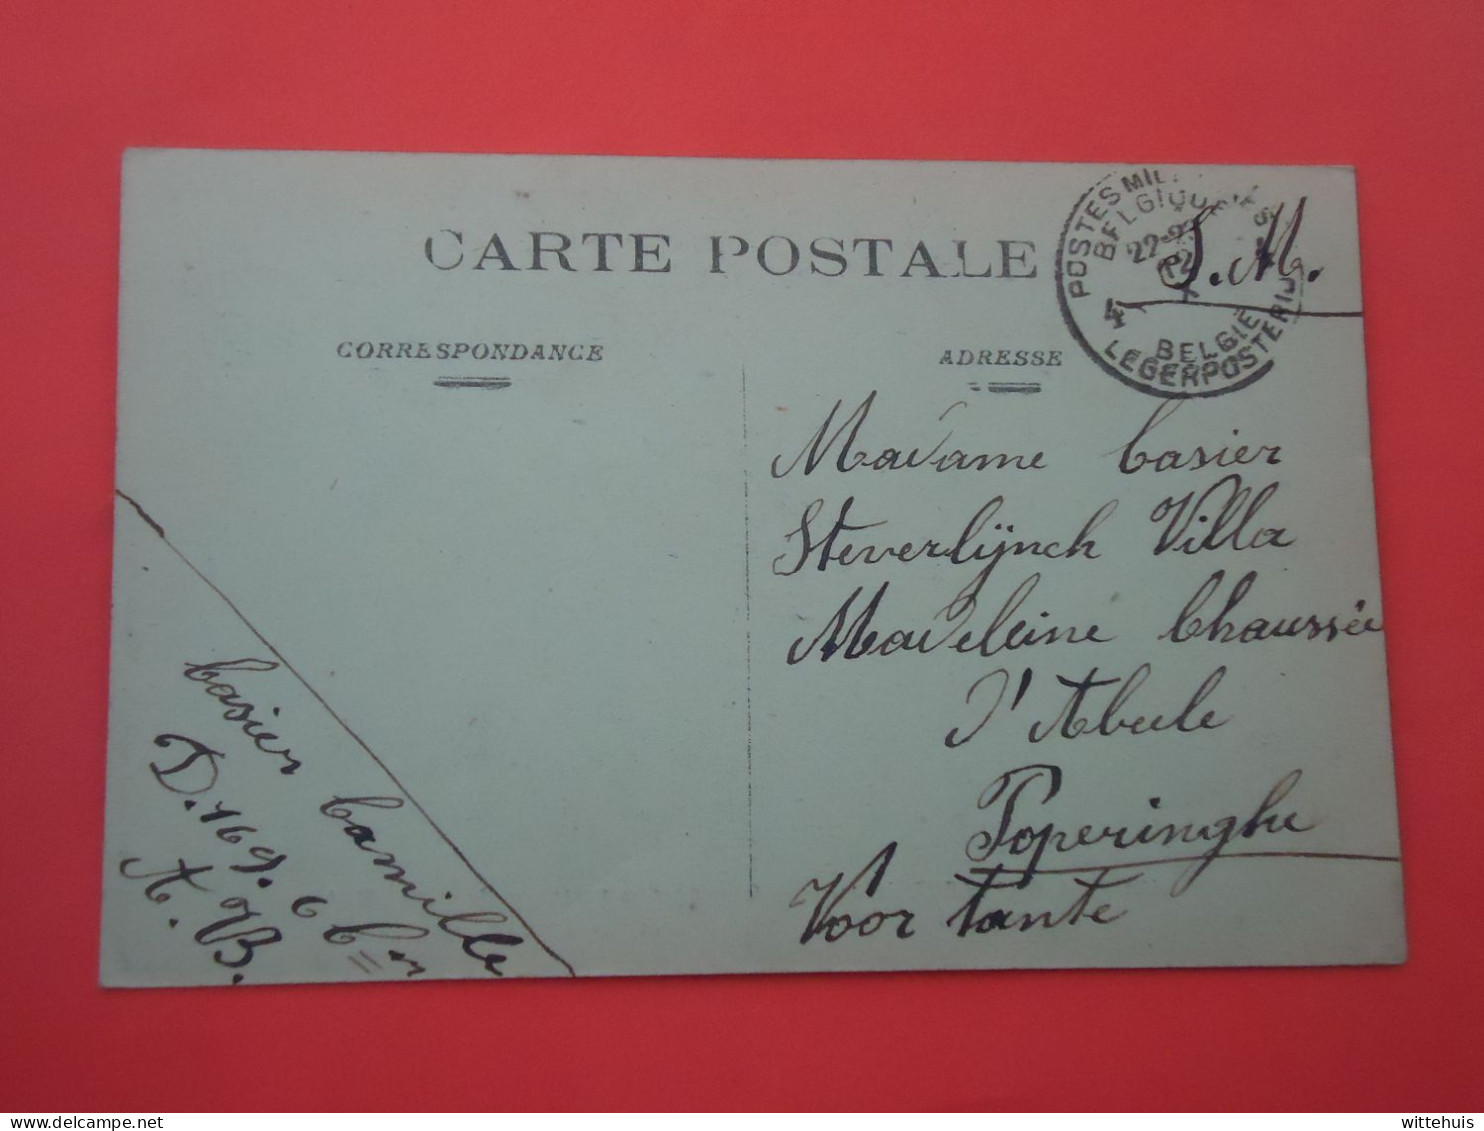 CARTE POSTALE
S.M.
POSTES MIL
BELGIQUE
22-23
4
BELGIË
LEGERPOSTERIJ
CORRESPONDANCE
ADRESSE
Madame Casier
Steverlijnck Villa
Madeleine Chaussée
d'Abeele
Poperinghe
Voor tante
Casier Camille
D.169. 6 Cie
A. B.
wittehuis